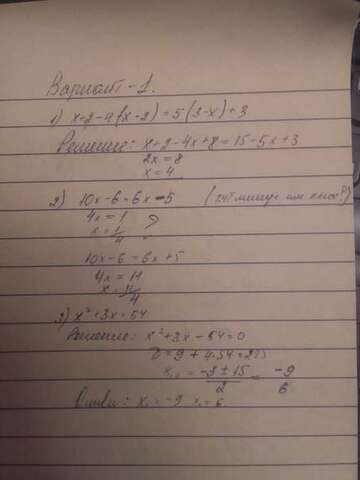 Вариант-1.
1) x+2-4(x-2)=5(3-x)+3
Решение: x+2-4x+8=15-5x+3
2x=8
x=4
2) 10x-6=6x-5 (тут минус или плюс?)
4x=1
x=1/4 ?
10x-6=6x+5
4x=11
x=11/4
3) x²+3x=54
Решение: x²+3x-54=0
D=9+4·54=225
x₁,₂=(-3±15)/2= -9 6
Ответ: x₁=-9 x₂=6